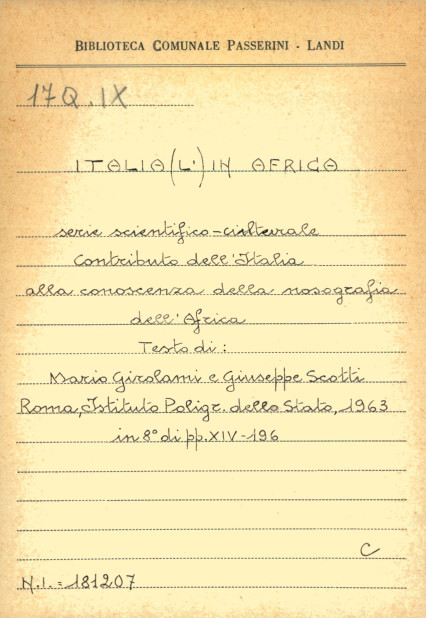 BIBLIOTECA COMUNALE PASSERINI - LANDI
17Q.IX
ITALIA(L') IN AFRICA
serie scientifico-culturale
Contributo dell'Italia
alla conoscenza della nosografia
dell'Africa
Testo di:
Mario Girolami e Giuseppe Scotti
Roma, Istituto Poligr. dello Stato, 1963
in 8° di pp. XIV-196
C
N.I.=181207